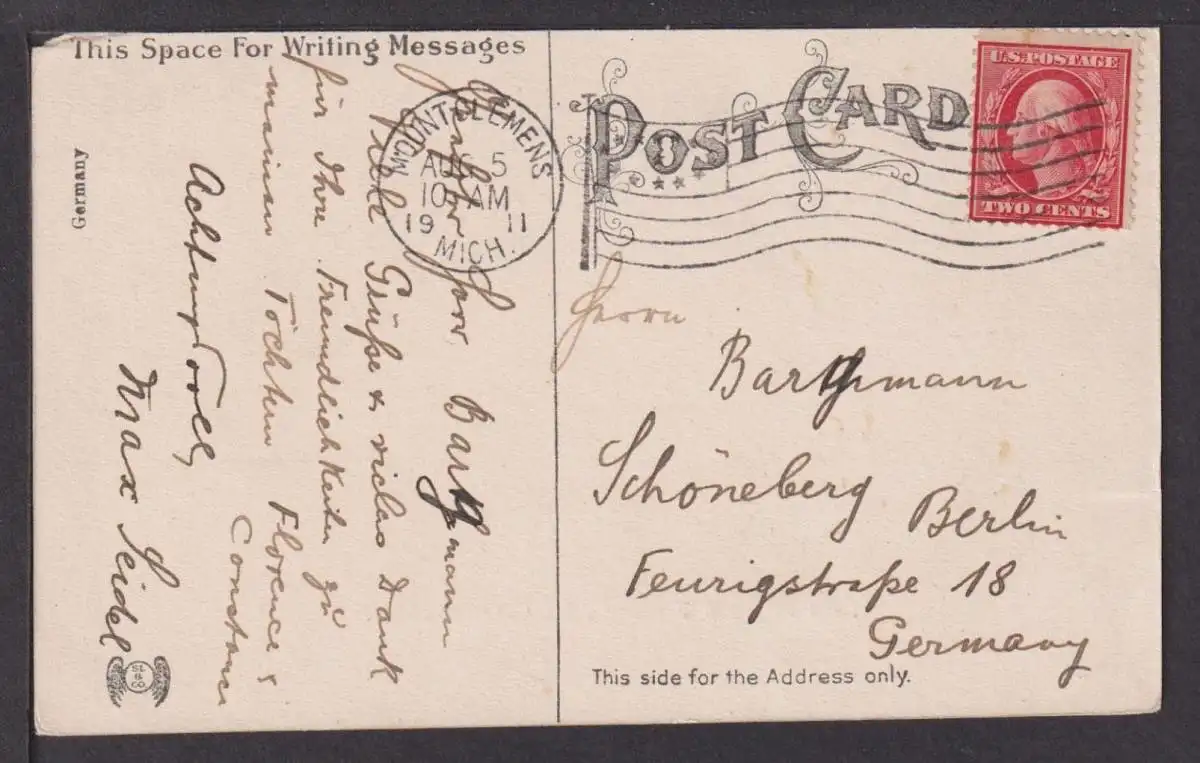 This Space For Writing Messages
POST CARD
U.S. POSTAGE
TWO CENTS
MOUNT CLEMENS
AUG 5
10 AM
19 11
MICH.
Geehrter Herr Barthmann
Viele Grüße & vielen Dank
für Ihre Freundlichkeiten zu
meinen Töchtern Florence &
Constance
Achtungsvoll,
Max Seidel
Germany
Herrn
Barthmann
Schöneberg Berlin
Feurigstraße 18
Germany
This side for the Address only.